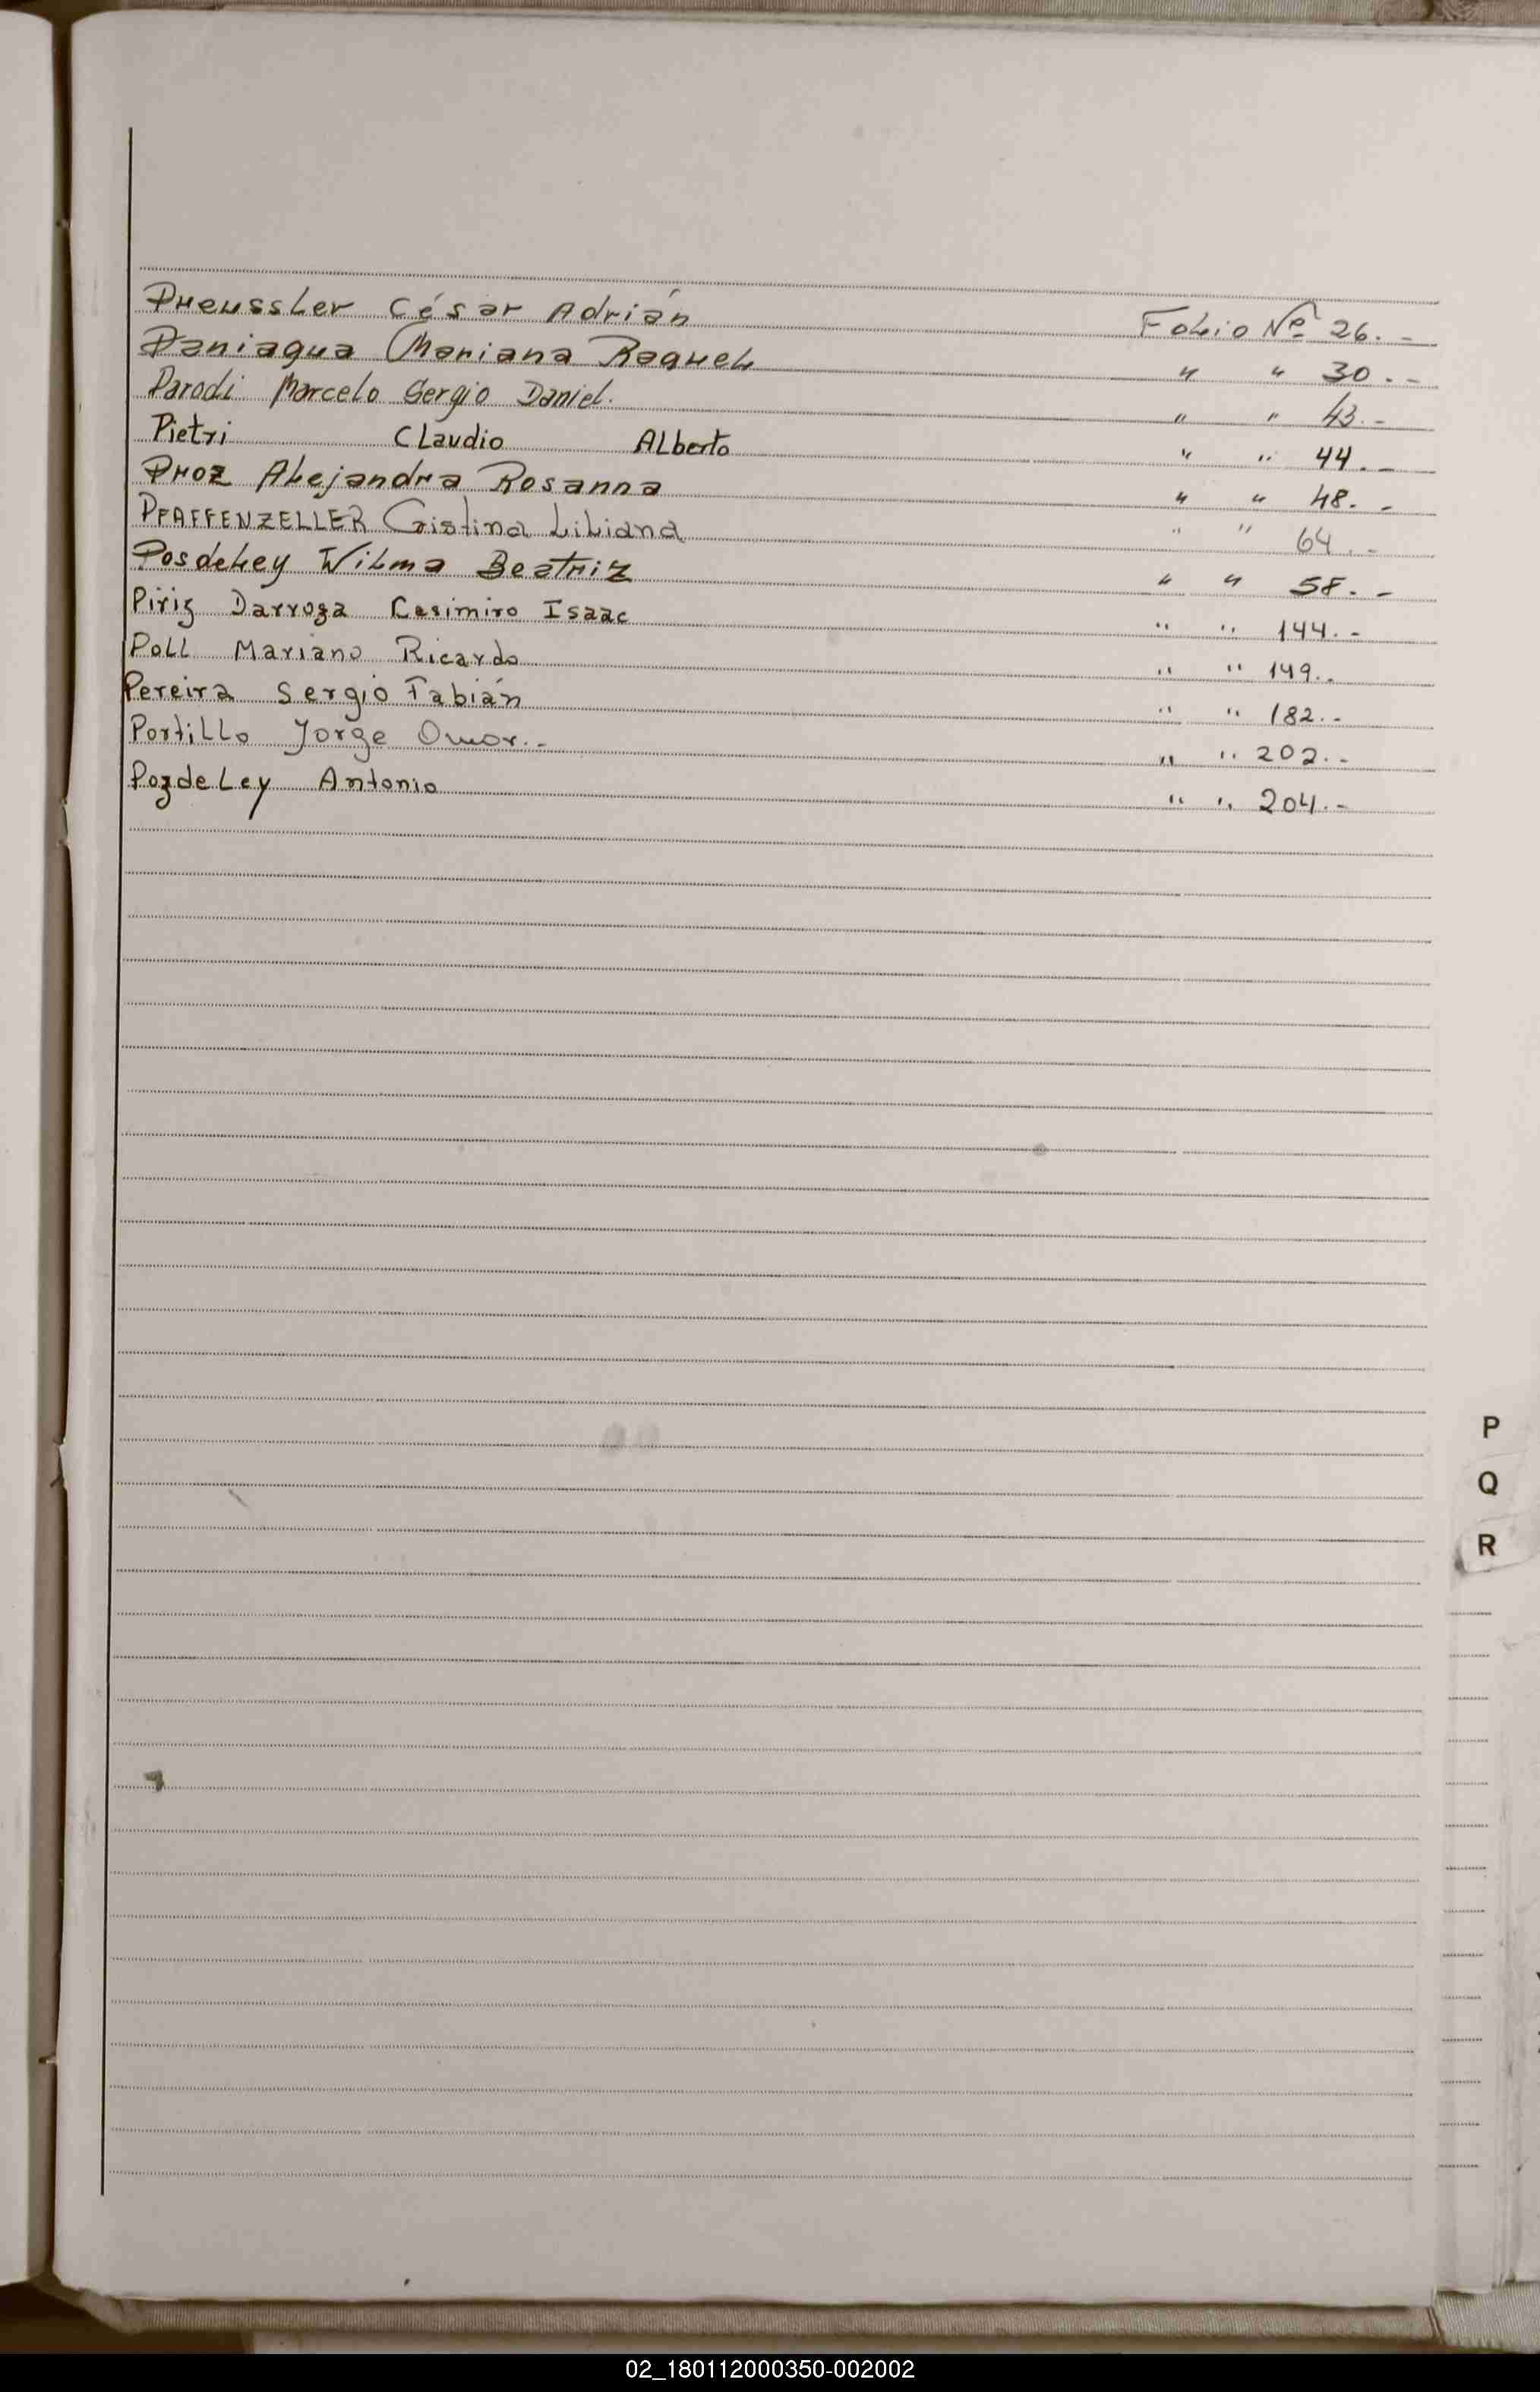 Preussler César Adrián Folio Nº 26.-
Paniagua Mariana Raquel " " 30.-
Parodi Marcelo Sergio Daniel. " " 43.-
Pietri Claudio Alberto " " 44.-
Proz Alejandra Rosanna " " 48.-
PFAFFENZELLER Cristina Liliana " " 64.-
Posdeley Wilma Beatriz " " 58.-
Piriz Darroza Casimiro Isaac " " 144.-
Poll Mariano Ricardo " " 149.-
Pereira Sergio Fabián " " 182.-
Portillo Jorge Omar.- " " 202.-
Pozdeley Antonio " " 204.-
P
Q
R
02_180112000350-002002